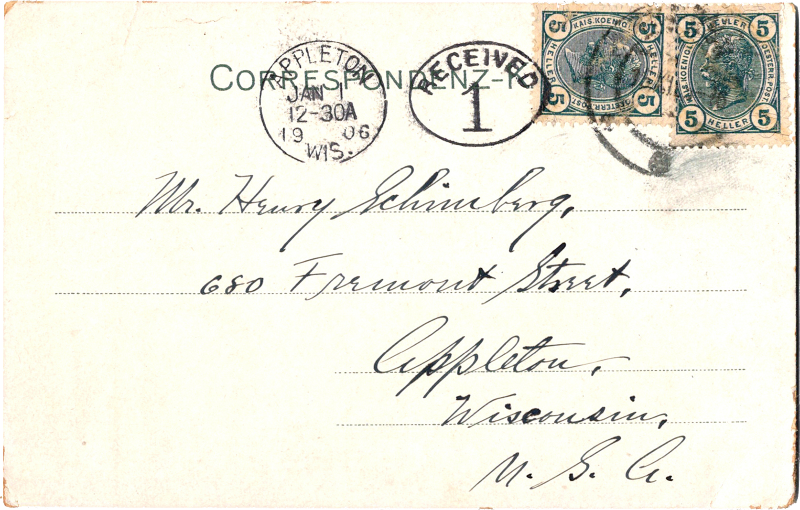 CORRESPONDENZ-K
APPLETON
JAN 1
12-30A
19 06
WIS.
RECEIVED
1
5 KAIS. KOENIGL. 5
HELLER HELLER
5 OESTERR. POST. 5
5 HELLER 5
KAIS. KOENIGL. OESTERR. POST.
5 HELLER 5
Mr. Henry Schimberg,
680 Fremont Street,
Appleton,
Wisconsin,
U. S. A.